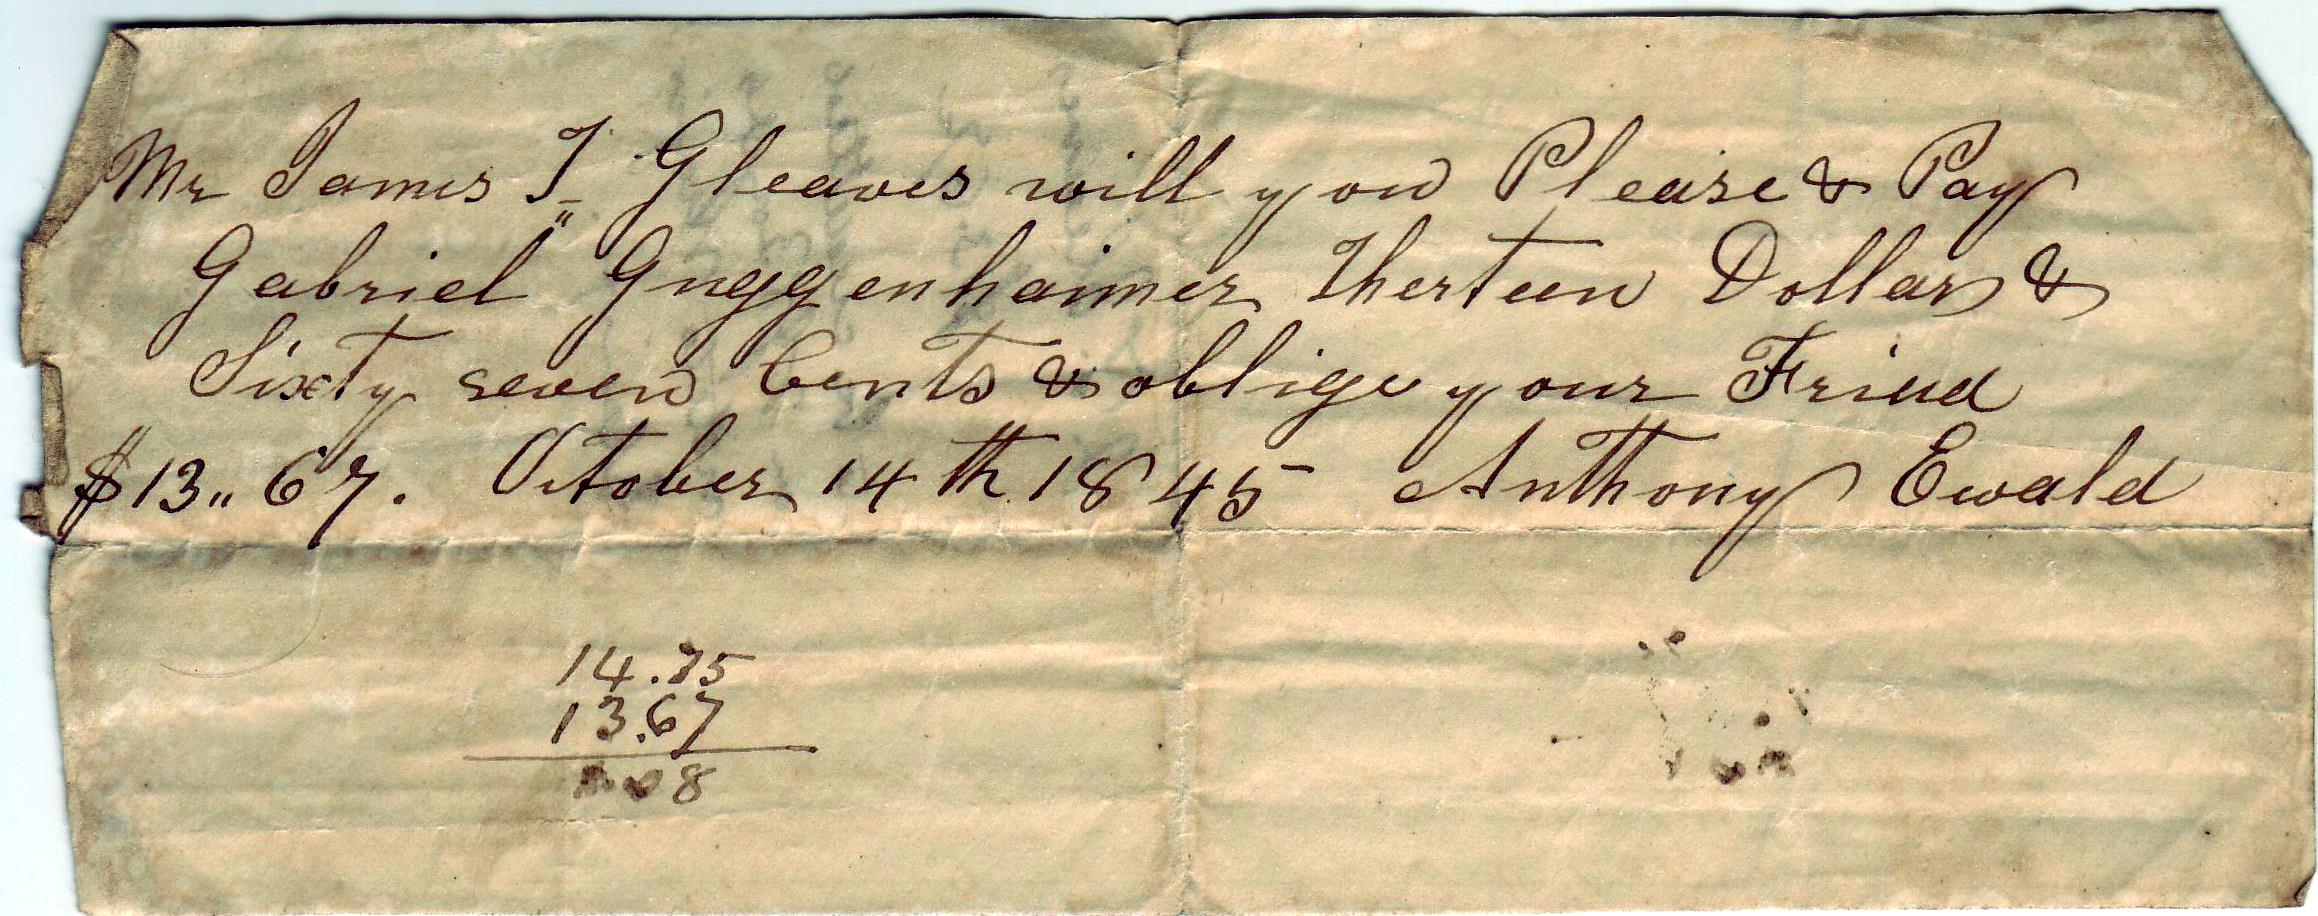 Mr James T. Gleaves will you Please & Pay
Gabriel Guggenhaimer Therteen Dollars &
Sixty seven Cents & oblige your Friend
$13„ 67. October 14th 1845 Anthony Ewald
14.75
13.67
8